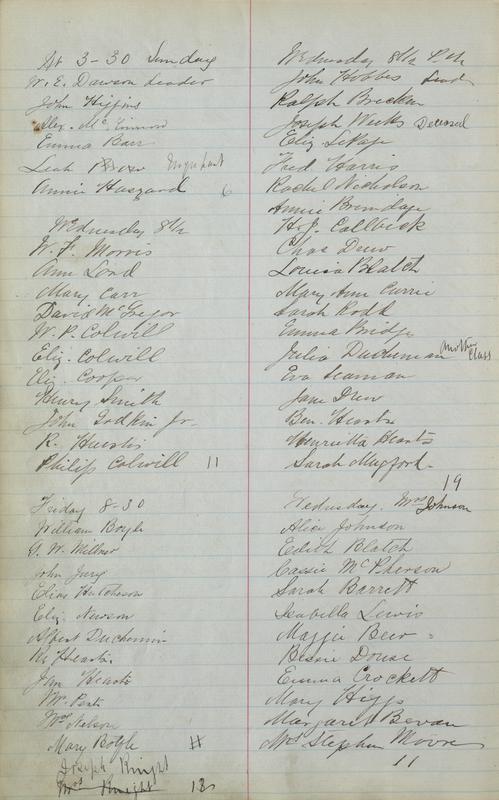 At 3-30 Sunday
W. E. Dawson Leader
John Higgins
Alex. McKinnon
Emma Barr
Leah
Annie Haszard 6
Wednesday 8 1/2
W. F. Morris
Ann Lord
Mary Carr
David McGregor
W. P. Colwill
Eliz. Colwill
Eliz. Cooper
Henry Smith
John Godkin Jr.
R. Huestis
Philip Colwill 11
Friday 8-30
William Boyle
G. W. Millner
John Jury
Elias Hutcheson
Eliz. Newson
Albert Duchemin
Hearts.
Jan Hearts
Wm.
Mrs Nelson
Mary Boyle #
Joseph Knight
Mrs Knight 13
Wednesday 8 1/2
John Hobbs Lead
Ralph Brecken
Joseph Weeks Deceased
Eliz LePage
Fred Harris
Rachel Nicholson
Annie Brundage
H. J. Callbeck
Chas Drew
Louisa Blatch
Mary Ann Currie
Sarah Rodd
Emma Bridge
Julia Duchemin Mother Class
Eva Seaman
Jane Drew
Ben. Hearts
Henrietta Hearts
Sarah Mugford.
19
Wednesday. Mrs Johnson
Alice Johnson
Edith Blatch
Cassie McPherson
Sarah Barrett
Isabella Lewis
Maggie Beer
Bessie Douse
Emma Crockett
Mary Higgs
Margaret Bevan
Mrs Stephen Moore
11